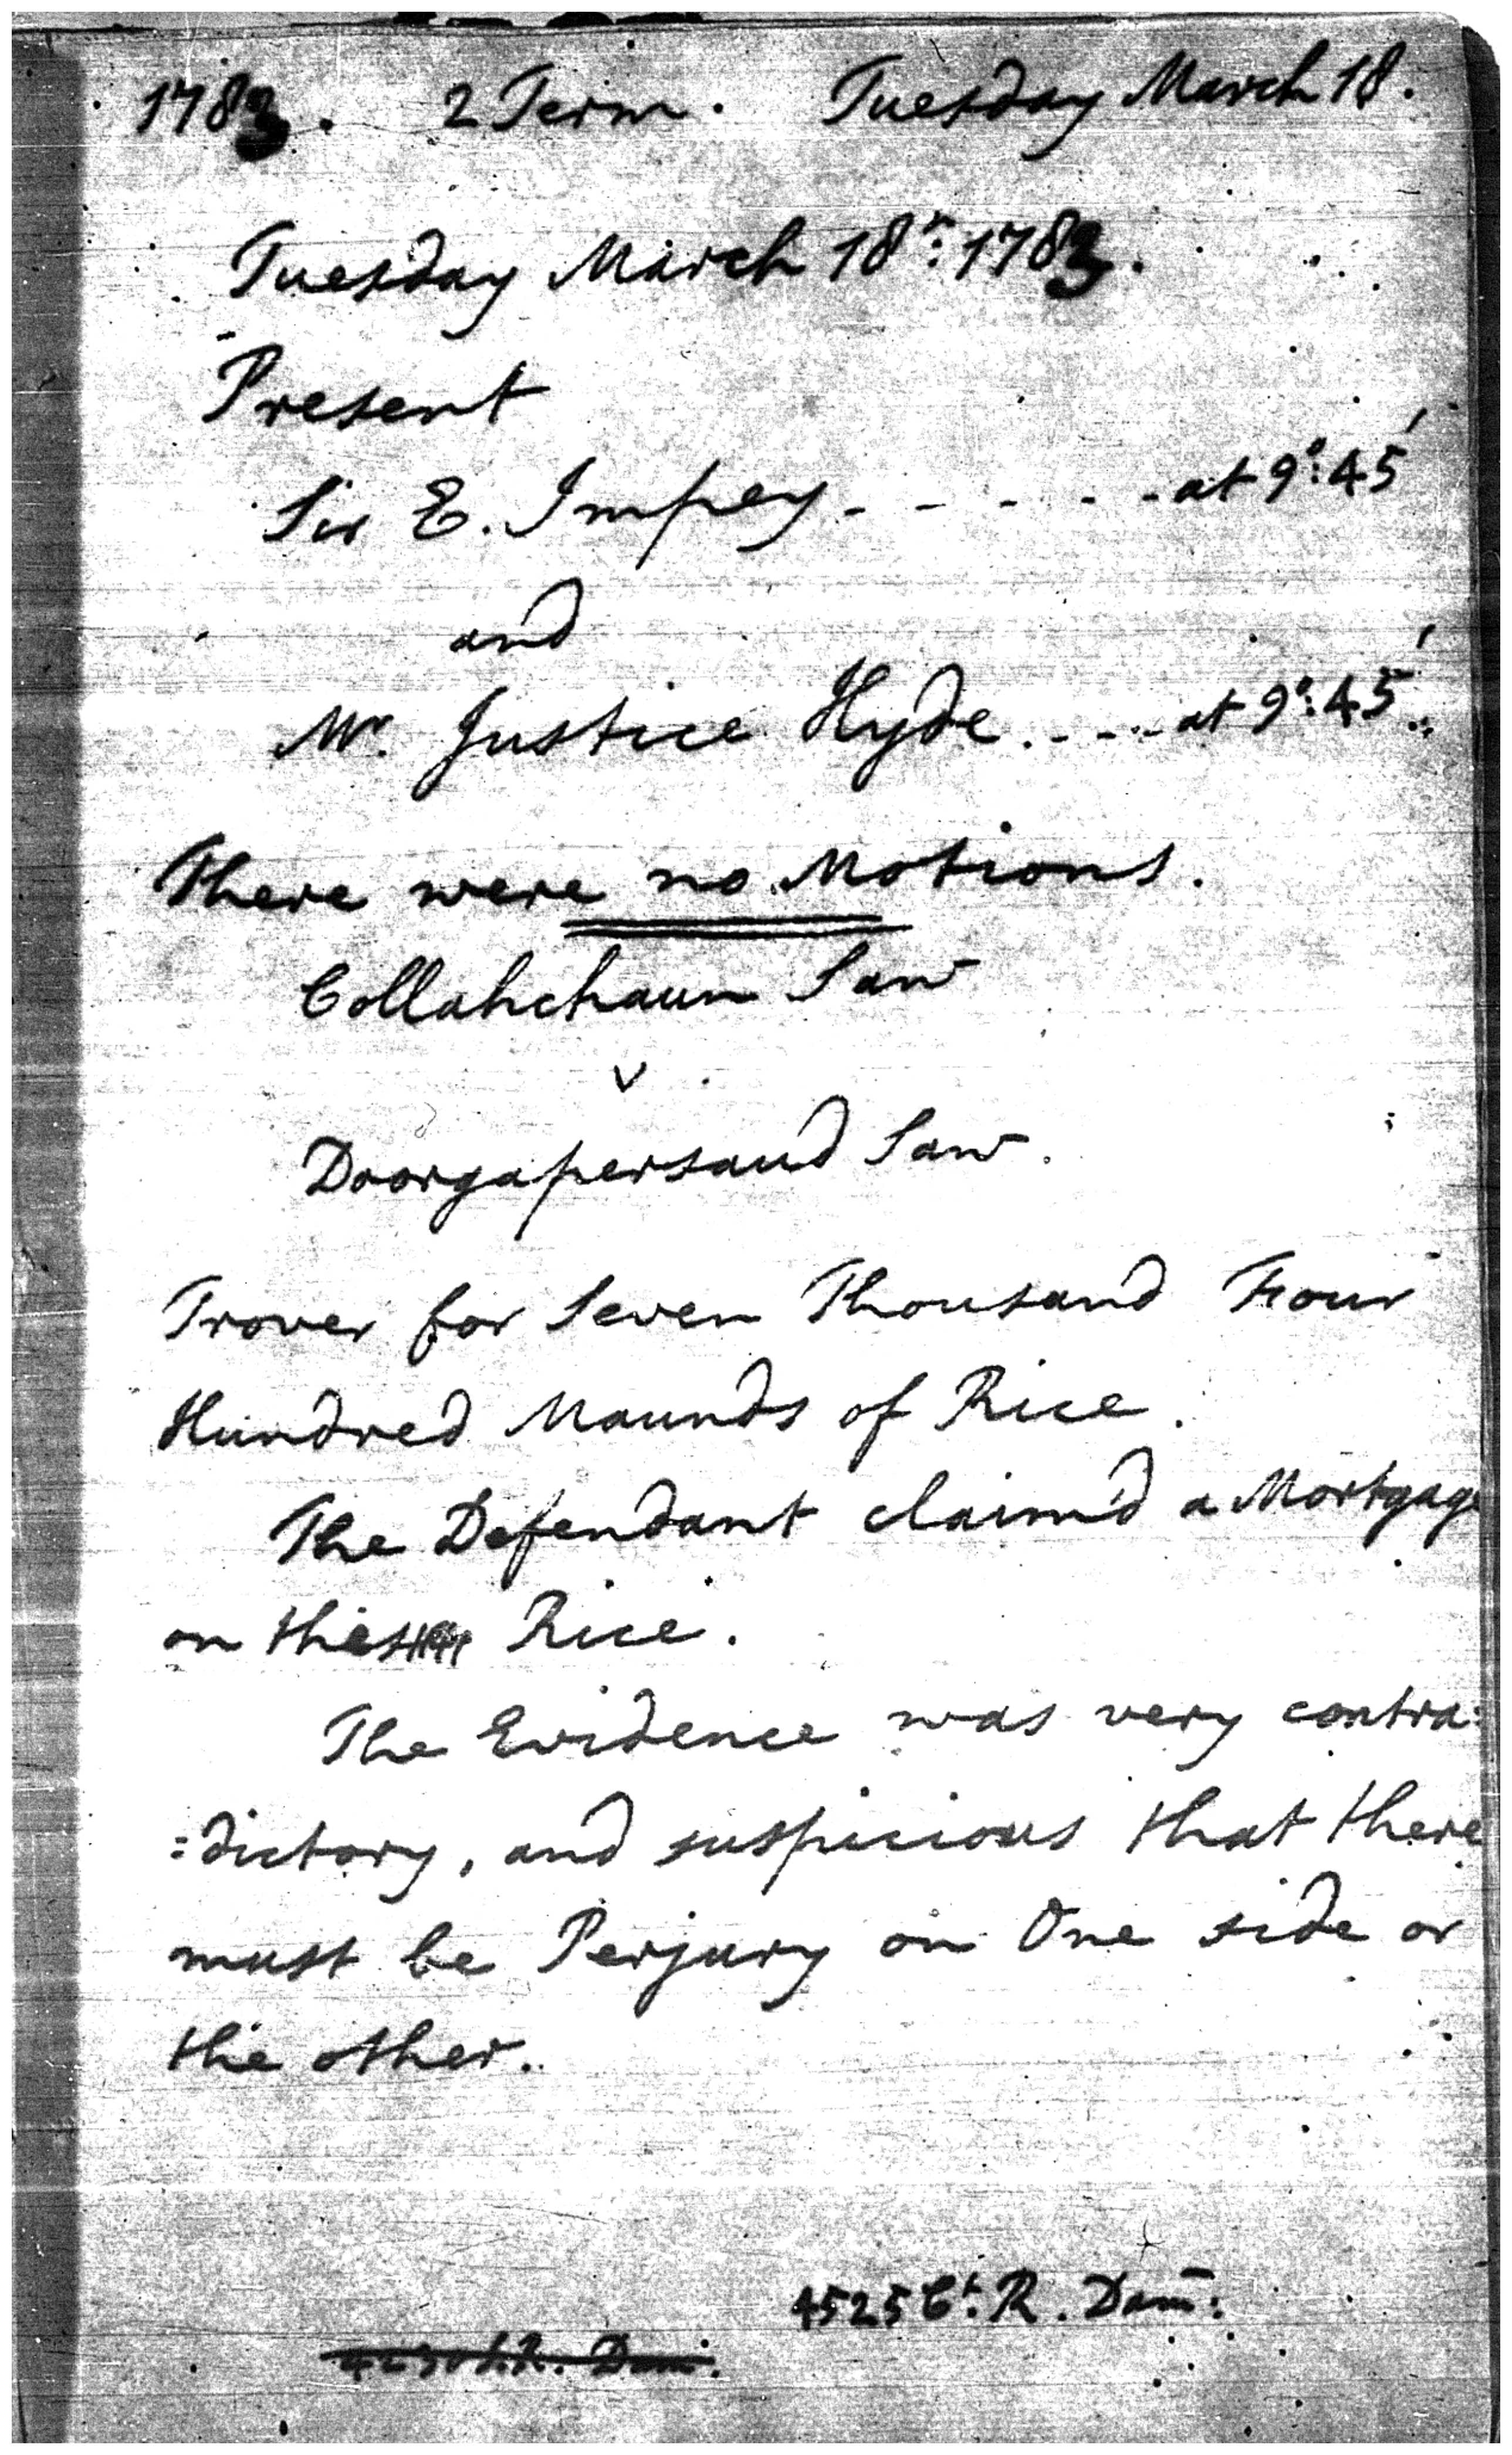 1783. 2 Term. Tuesday March 18.
Tuesday March 18th: 1783.
Present
Sir E. Impey - - - - - at 9°: 45'
and
Mr. Justice Hyde. - - - at 9°: 45'.
There were no Motions.
Collahchaun Saw
v
Doorgapersaud Saw.
Trover for Seven Thousand Four
Hundred Maunds of Rice.
The Defendant claim'd a Mortgage
on this Rice.
The Evidence was very contra:
:dictory, and suspicious that there
must be Perjury on One side or
the other.
4525 Ct. R. Dam:
R. Dam: